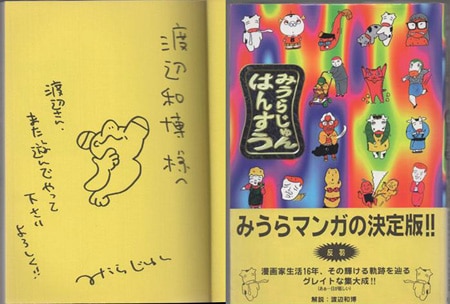 渡辺和博様へ
渡辺さん、
また遊んでやって
下さい
よろしく!!
みうらじゅん
みうらじゅん
はんすう
みうらマンガの決定版!!
反芻
漫画家生活16年、その輝ける軌跡を辿る
グレイトな集大成!!
解説:渡辺和博